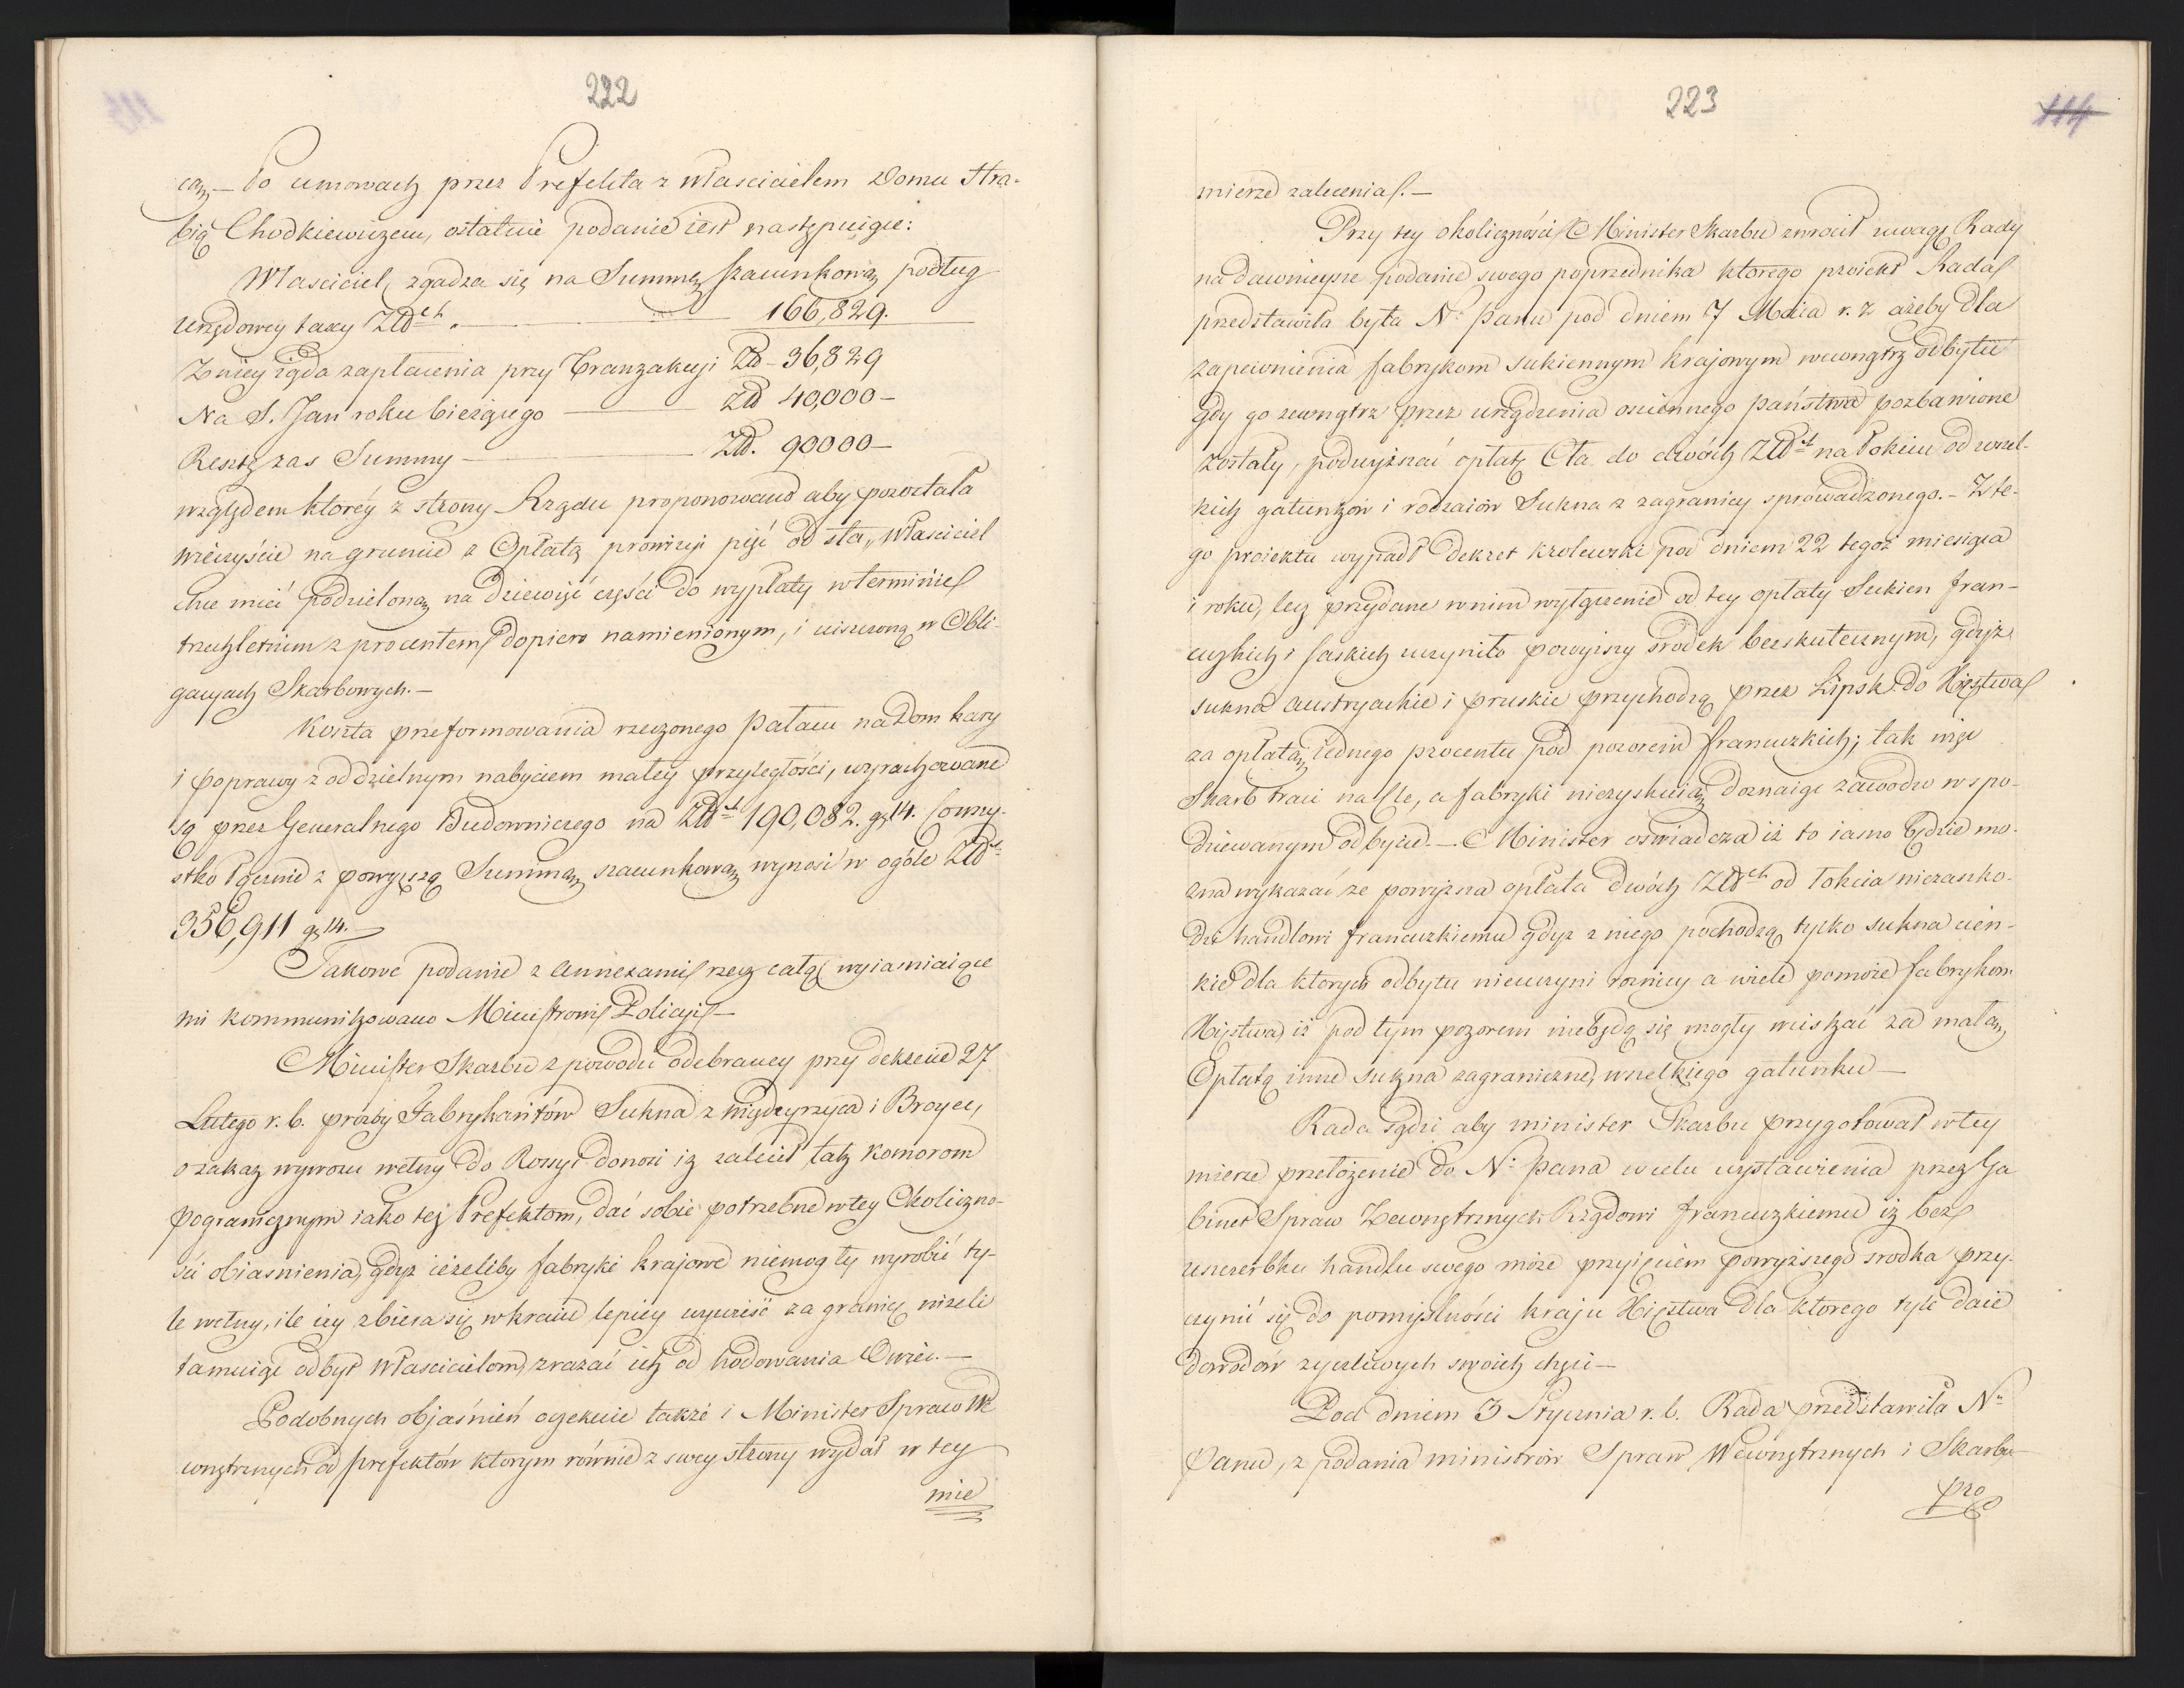 222
cą, — Po umowach przez Prefekta z właścicielem Domu Hra-
bią Chodkiewiczem, ostatnie podanie iest następuiące:
Własciciel, zgadza się na Summę szacunkową podług
urzędowey taxy Złd ch. — 166,829.
Z niey żąda zapłacenia przy Tranzakcyi Zł — 36,829
Na S. Jan roku bieżącego — Zł 40,000 —
Resztę zas Summy — Zł. 90000 —
względem którey z strony Rządu proponowano aby pozostała
wieczyście na gruncie z Opłatą prowizyi pięć od sta, Właściciel
chce mieć podzieloną na dziewięć części do wypłaty w terminie
trzechletnim z procentem dopiero namienionym, i uiszczoną w Obli-
gacyach Skarbowych. —
Koszta preformowania rzeczonego Pałacu na Dom kary
i poprawy z oddzielnym nabyciem małey przyległości, wyrachowane
są przez Generalnego Budowniczego na Złd ch 190,082. gr 14. Co wszy-
stko łącznie z powyższą Summą szacunkową wynosi w ogóle Złd ch
356,911 gr 14. —
Takowe podanie z Annexami rzecz całą wyiasniaiące
mi kommunikowano Ministrowi Policyi —
Minister Skarbu z powodu odebraney przy dekrecie 27
Lutego r. b. prozby Fabrykantów Sukna z Międzyrzyca i Broyec,
o zakaz wywozu wełny do Rossyi donosi iz zalecił tak Komorom
pogranicznym iako też Prefektom, dać sobie potrzebne w tey Okoliczno-
ści obiasnienia, gdyż ieżeliby fabryki krajowe niemogły wyrobić ty-
le wełny, ile iey zbiera się w kraiu lepiey wywieść za granicę niżeli
tamuiąc odbyt Właścicielom, zrazać ich od hodowania Owiec. —
Podobnych objaśnień oczekuie także i Minister Spraw We
wnętrznych od prefektów ktorym równie z swey strony wydał w tey
mie
223
114
mierze zalecenia. —
Przy tey okoliczności Minister Skarbu zwrócił uwagę Rady
na dawnieysze podanie swego poprzednika ktorego proiekt Rada
przedstawiła była N: Panu pod dniem 7 Maia r. z ażeby dla
zapewnienia fabrykom sukiennym krajowym wewnątrz odbytu
gdy go zewnątrz przez urządzenia osciennego państwa pozbawione
zostały, podwyższać opłatę Cła do dwóch Złd ch na łokciu od wszel-
kich gatunków i rodzaiów Sukna z zagranicy sprowadzonego. — Z te-
go proiektu wypadł Dekret królewski pod dniem 22 tegoż miesiąca
i roku, lecz przydane w nim wyłączenie od tey opłaty Sukien fran-
cuzkich i saskich uczyniło powyższy srodek bezskutecznym, gdyż
sukna austryackie i pruskie przychodzą przez Lipsk do Xięstwa
za opłatą iednego procentu pod pozorem francuzkich; tak więc
Skarb traci na Cle, a fabryki niezyskuią doznaiąc zawodu w spo-
dziewanym odbycie. — Minister oświadcza iż to iasno będzie mo-
zna wykazać ze powyższa opłata dwóch Złd ch od łokcia niezaszko-
dzi handlowi francuzkiemu gdyz z niego pochodzą tylko sukna cien-
kie dla ktorych odbytu nieuczyni roznicy a wiele pomoże fabrykom
Xięstwa, iż pod tym pozorem niebędą się mogły wciskać za małą
Opłatą inne sukna zagraniczne, wszelkiego gatunku —
Rada sądzi aby minister Skarbu przygotował w tey
mierze przełożenie do N: Pana w celu wystawienia przez Ga
binet Spraw Zewnętrznych Rządowi francuzkiemu iz bez
uszczerbku handlu swego może przyięciem powyższego srodka przy-
czynić się do pomyślności kraju Xięstwa dla ktorego tyle daie
dowodów życzliwych swoich chęci —
Pod dniem 3 Stycznia r. b. Rada przedstawiła N:
Panu, z podania ministrów Spraw Wewnętrznych i Skarbu
pro